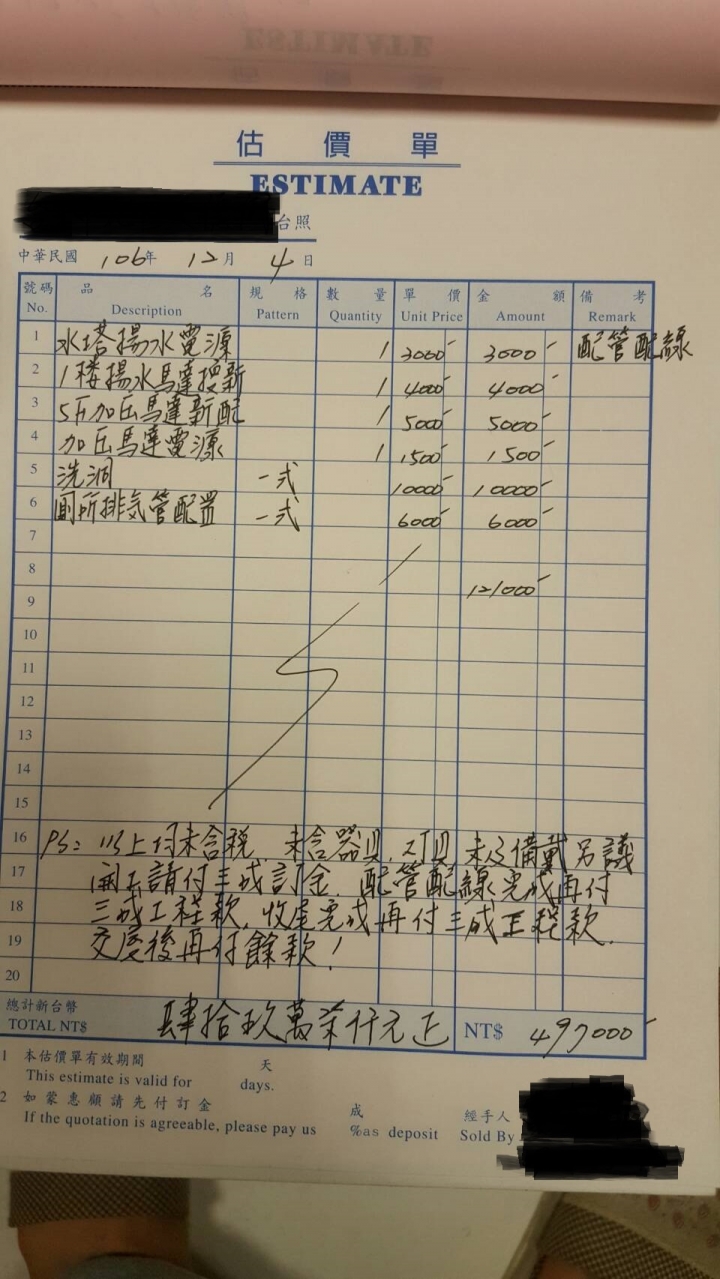 估價單
ESTIMATE
台照
中華民國 106年 12月 4日
號碼 品名 規格 數量 單價 金額 備考
No. Description Pattern Quantity Unit Price Amount Remark
1 水塔揚水電源 1 3000 3000 配管配線
2 1楼揚水馬達換新 1 4000 4000
3 5F加压馬達新配 1 5000 5000
4 加压馬達電源 1 1500 1500
5 洗洞 一式 10000 10000
6 厠所排気管配置 一式 6000 6000
7
8
9 121000
10
11
12
13
14
15
16 PS: 以上付未含税 未含器具.灯具 未及備載另議
17 開工請付三成訂金. 配管配線完成再付
18 三成工程款. 收尾完成再付三成工程款.
19 交屋後再付餘款!
20
總計新台幣 肆拾玖萬柒仟元正
TOTAL NT$ NT$ 497000
1 本估價單有效期間 天
This estimate is valid for days.
2 如蒙惠顧請先付訂金 成 經手人
If the quotation is agreeable, please pay us %as deposit Sold By